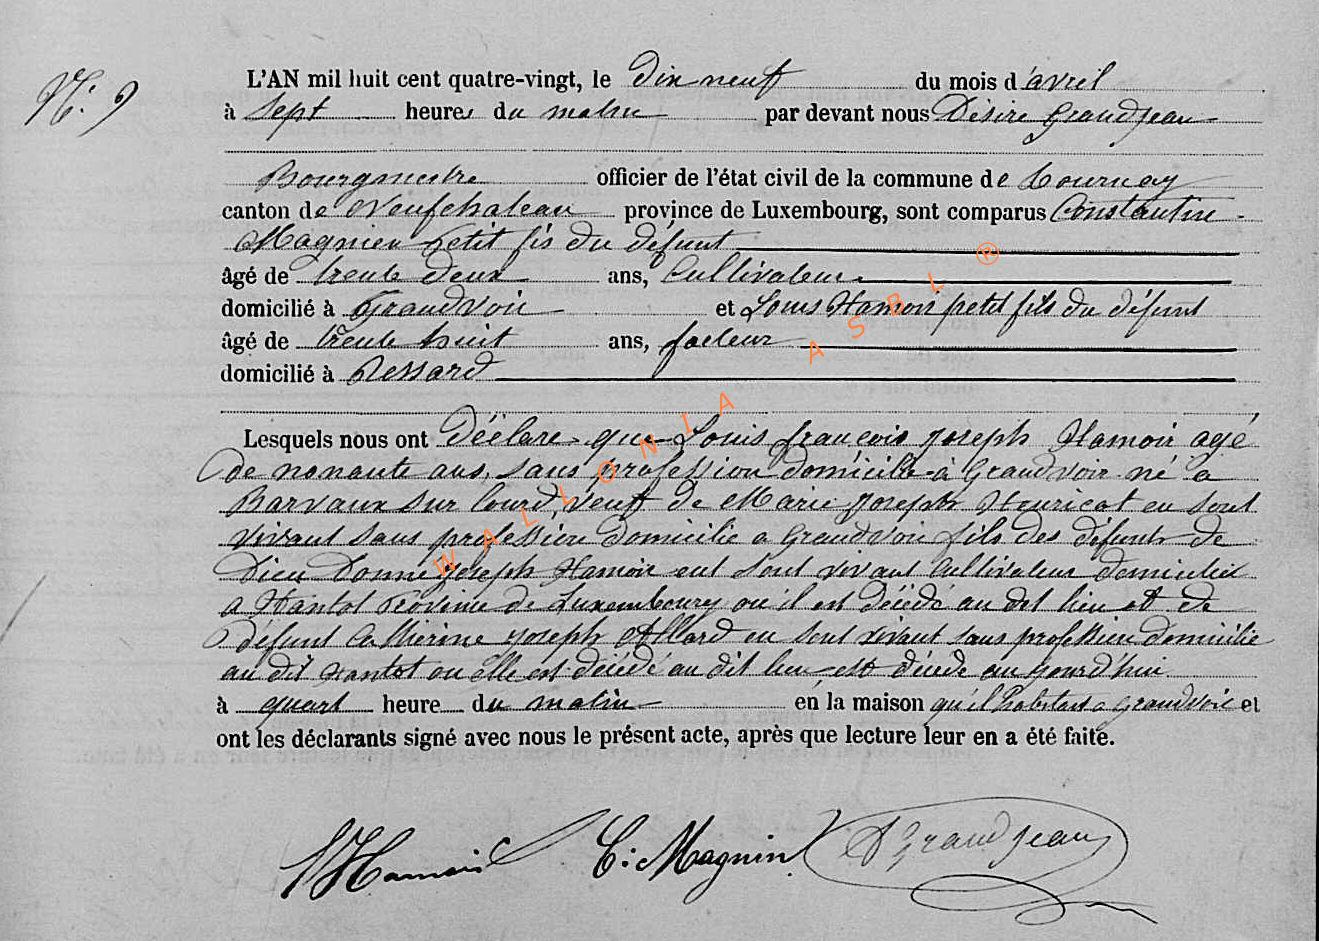 N: 9
L'AN mil huit cent quatre-vingt, le dix neuf du mois d'avril
à Sept heures du matin par devant nous Désire Grandjean
Bourgmestre officier de l'état civil de la commune de Tournay
canton de Neufchateau province de Luxembourg, sont comparus Constantin
Magnien petit fis du défunt
âgé de trente deux ans, Cultivateur
domicilié à Grandvoir et Louis Hamoir petit fils du défunt
âgé de trente huit ans, facteur
domicilié à Ressard
Lesquels nous ont déclare que Louis françois joseph Hamoir agé
de nonante ans, sans profession domicilié à Grandvoir né a
Barvaux sur Lourd, veuf de Marie joseph Henricot en sont
vivant sans profession domicilie a Grandvoir fils des défunts de
Dieu Donné joseph Hamoir ent sont vivant Cultivateur domicilié
a Hantot Province de Luxembourg ou il est décédé au dit lieu et de
défunt Catherine joseph Allard en sont vivant sans profession domicilie
au dit Hantot ou elle est décédé au dit lieu est décede aujourd'hui
à quart heure du matin en la maison qu'il habitait a Grandvoir et
ont les déclarants signé avec nous le présent acte, après que lecture leur en a été faite.
LHamoir C: Magnien DGrandjean
WALLONIA ASBL ®